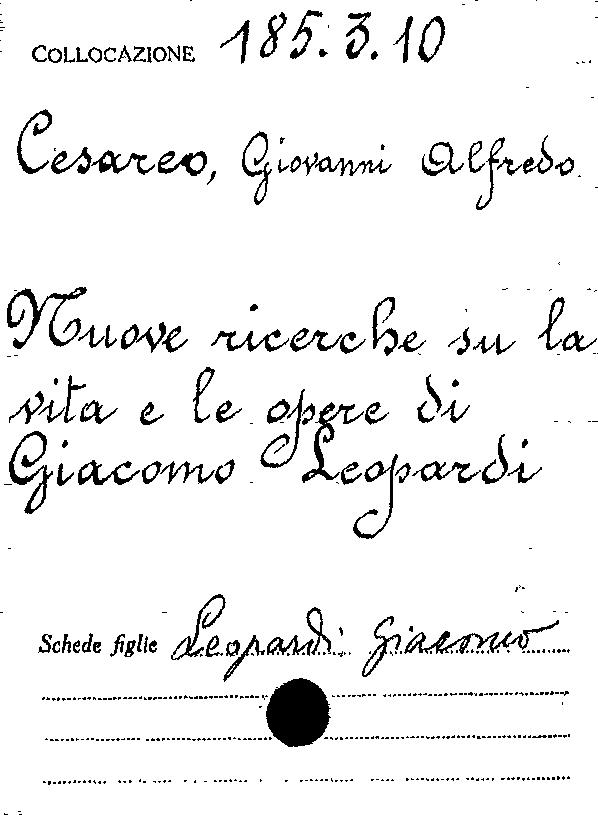 COLLOCAZIONE 185.3.10
Cesareo, Giovanni Alfredo
Nuove ricerche su la
vita e le opere di
Giacomo Leopardi
Schede figlie Leopardi Giacomo